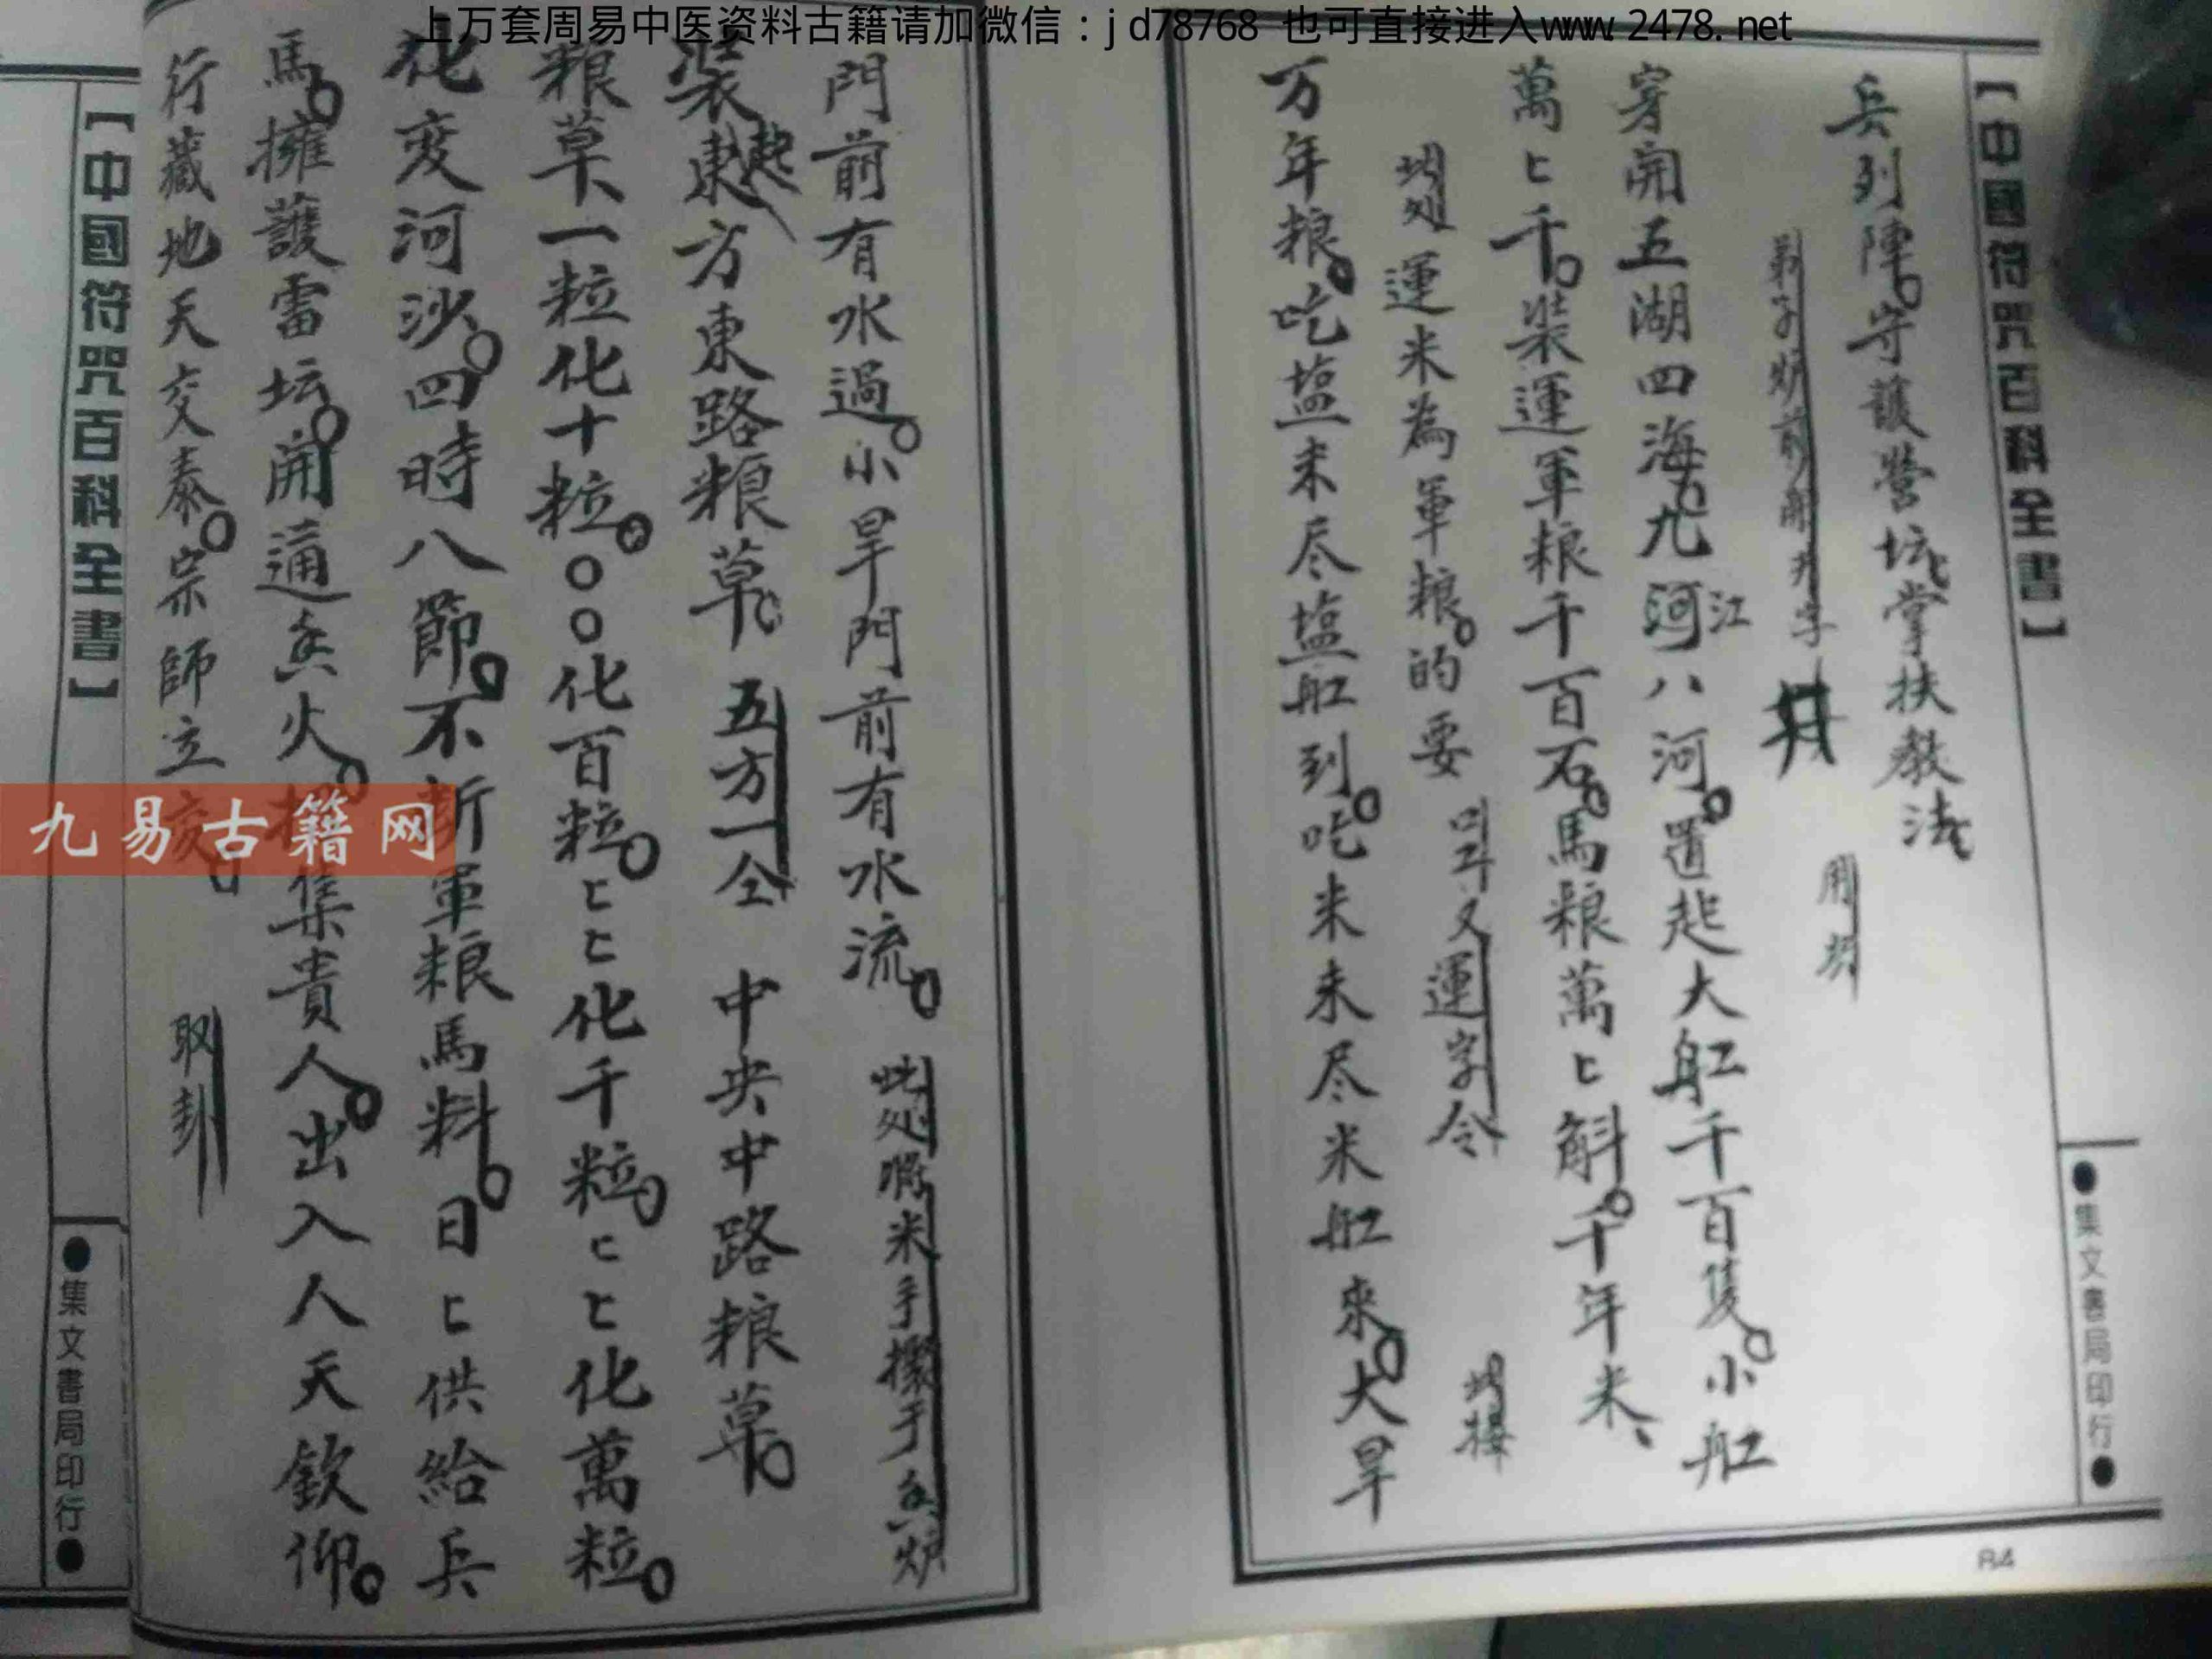 上万套周易中医资料古籍请加微信：jd78768 也可直接进入www.2478.net
【中國符咒百科全書】
●集文書局印行●
兵列陣守護營坛掌扶教法
弟子炉前開井字 井
用
穿開五湖四海九河江八河置起大舡千百隻小舡
萬〻千装運軍粮千百石馬粮萬〻斛千年米、
此处運米為軍粮的要
又運字令
此接
万年粮吃塩未尽塩舡到吃米未尽米舡來大旱
84
門前有水過小旱門前有水流
此处將米手擲于香炉
装起東方東路粮草 五方一仝 中央中路粮草
粮草一粒化十粒〇〇化百粒〻〻化千粒〻〻化萬粒
化変河沙四時八節不断軍粮馬料日〻供給兵
馬擁護雷坛開通香火招集貴人出入人天欽仰
行藏地天交泰宗師立
取卦
【中國符咒百科全書】
●集文書局印行●
九易古籍网